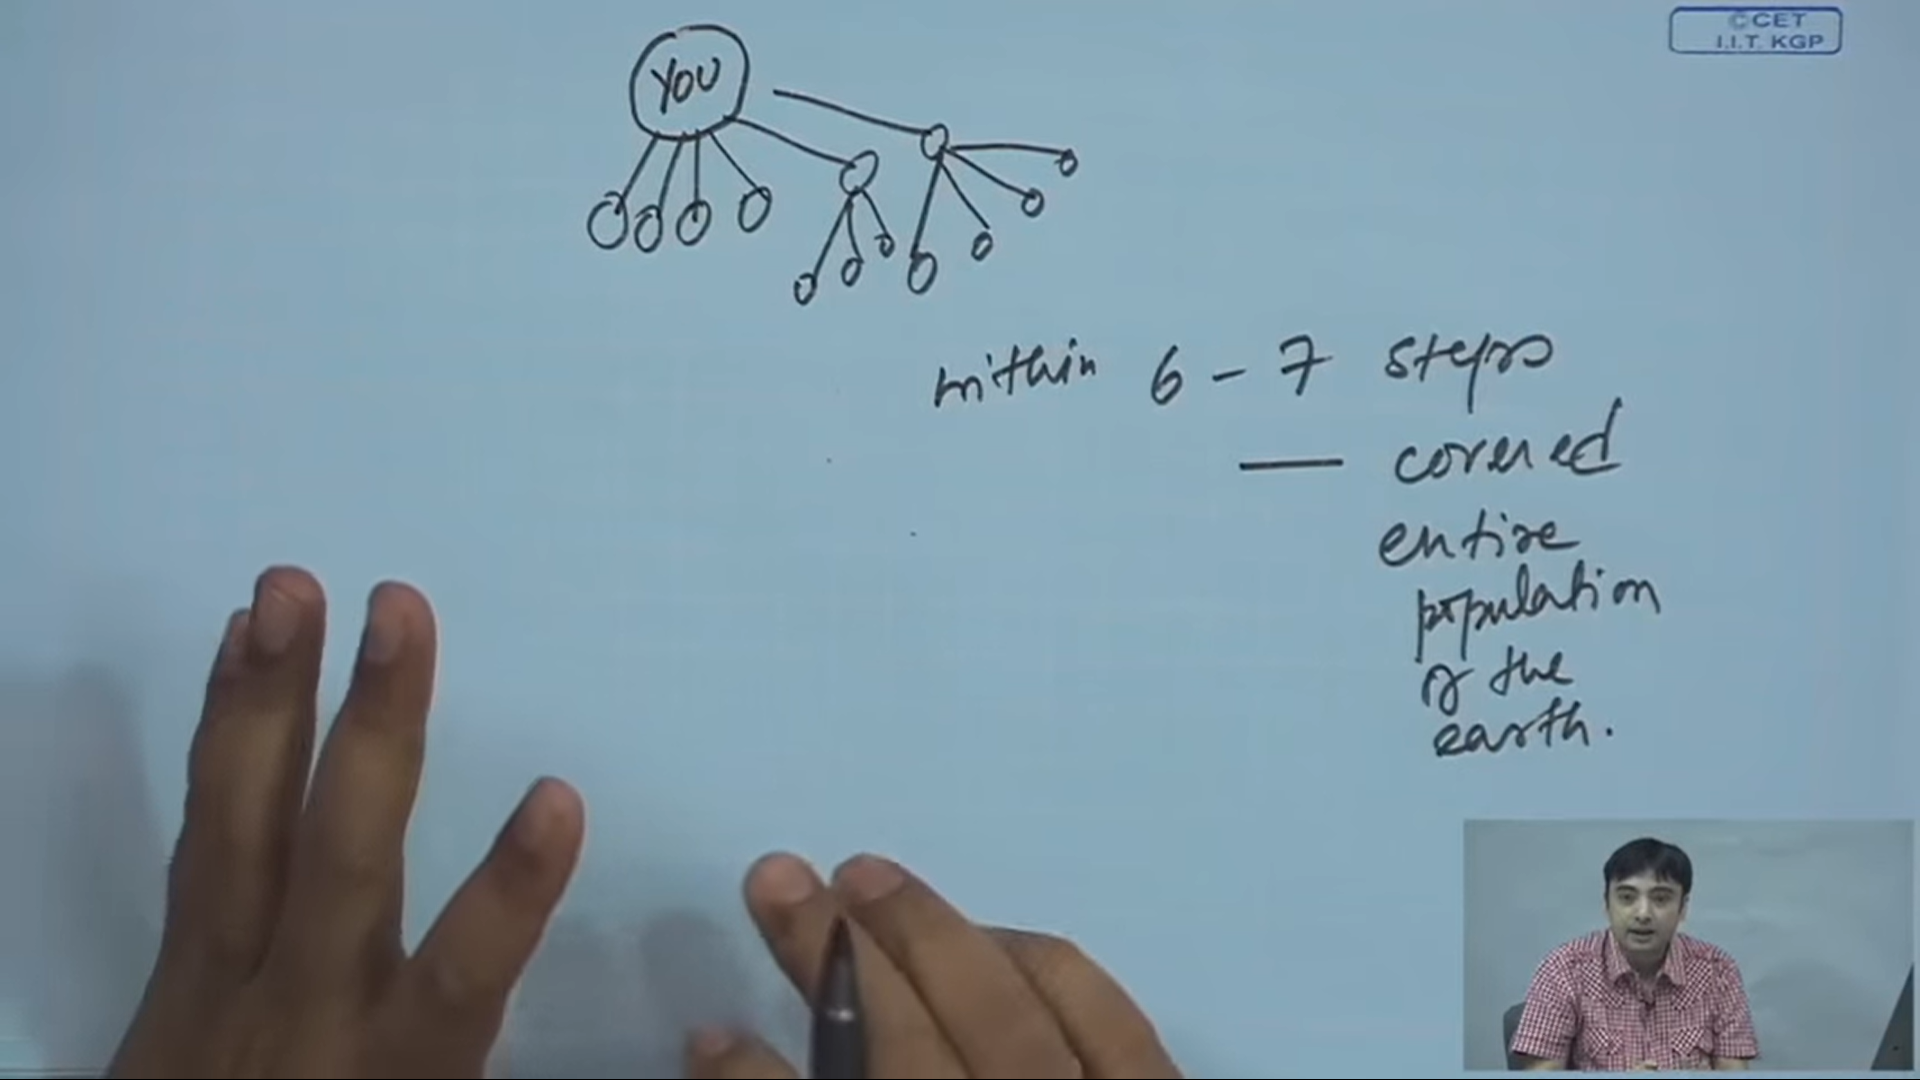 ©CET
I.I.T. KGP
YOU
within 6 - 7 steps
— covered
entire
population
of the
earth.